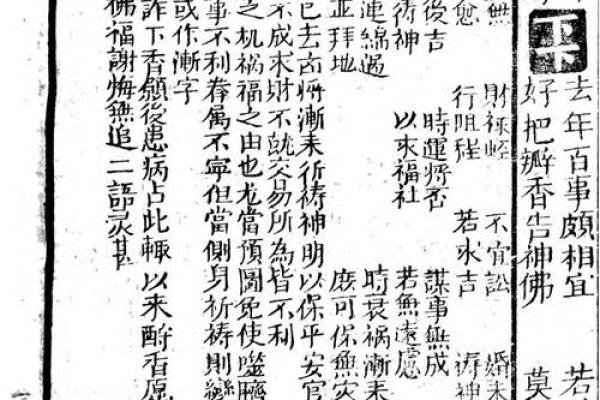 下下
去年百事頗相宜 若
好把瓣香告神佛 莫
無 財祿輕 不宜訟 婚未
愈 行阻程 若求吉 禱神
後吉 時運將否 謀事無成
祈神 以求福社 若無遠慮
連綿過 時衰禍漸来
並拜地 庶可保無灾
已去 將漸来祈禱神明以保平安官
不成求財不就交易所為皆不利
之机禍福之由也尤當預圖免使噬臍
事不利眷属不寧但當側身祈禱則變
或作漸字
許下香願後患病占此輙以来酧香愿
佛福謝悔無追二語灵甚